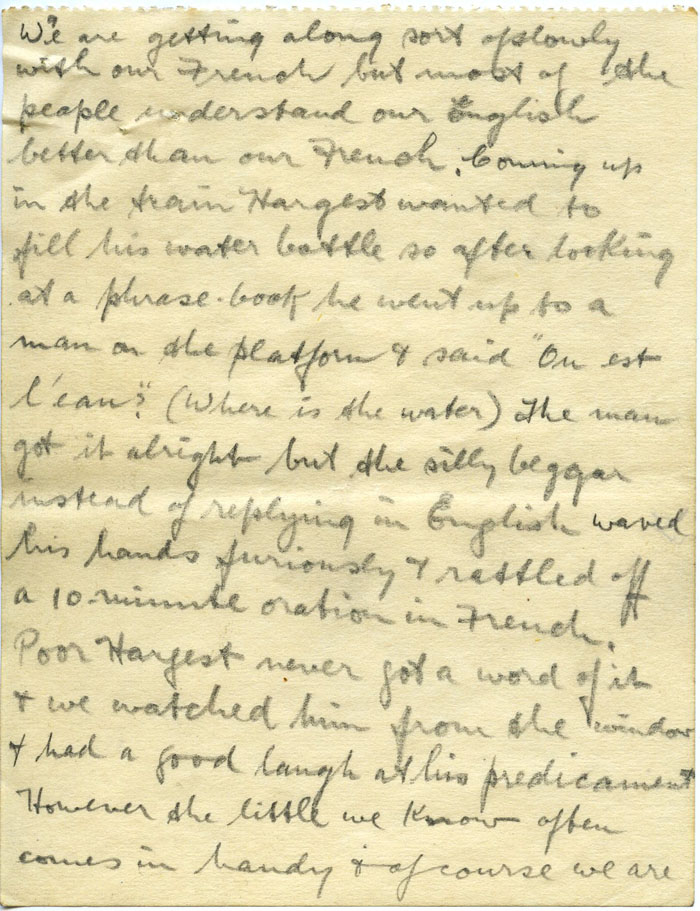 We are getting along sort of slowly
with our French but most of the
people understand our English
better than our French. Coming up
in the train Hargest wanted to
fill his water bottle so after looking
at a phrase-book he went up to a
man on the platform & said "Ou est
l'eau?" (Where is the water) The man
got it alright but the silly beggar
instead of replying in English waved
his hands furiously & rattled off
a 10-minute oration in French.
Poor Hargest never got a word of it
& we watched him from the window
& had a good laugh at his predicament
However the little we know often
comes in handy & of course we are